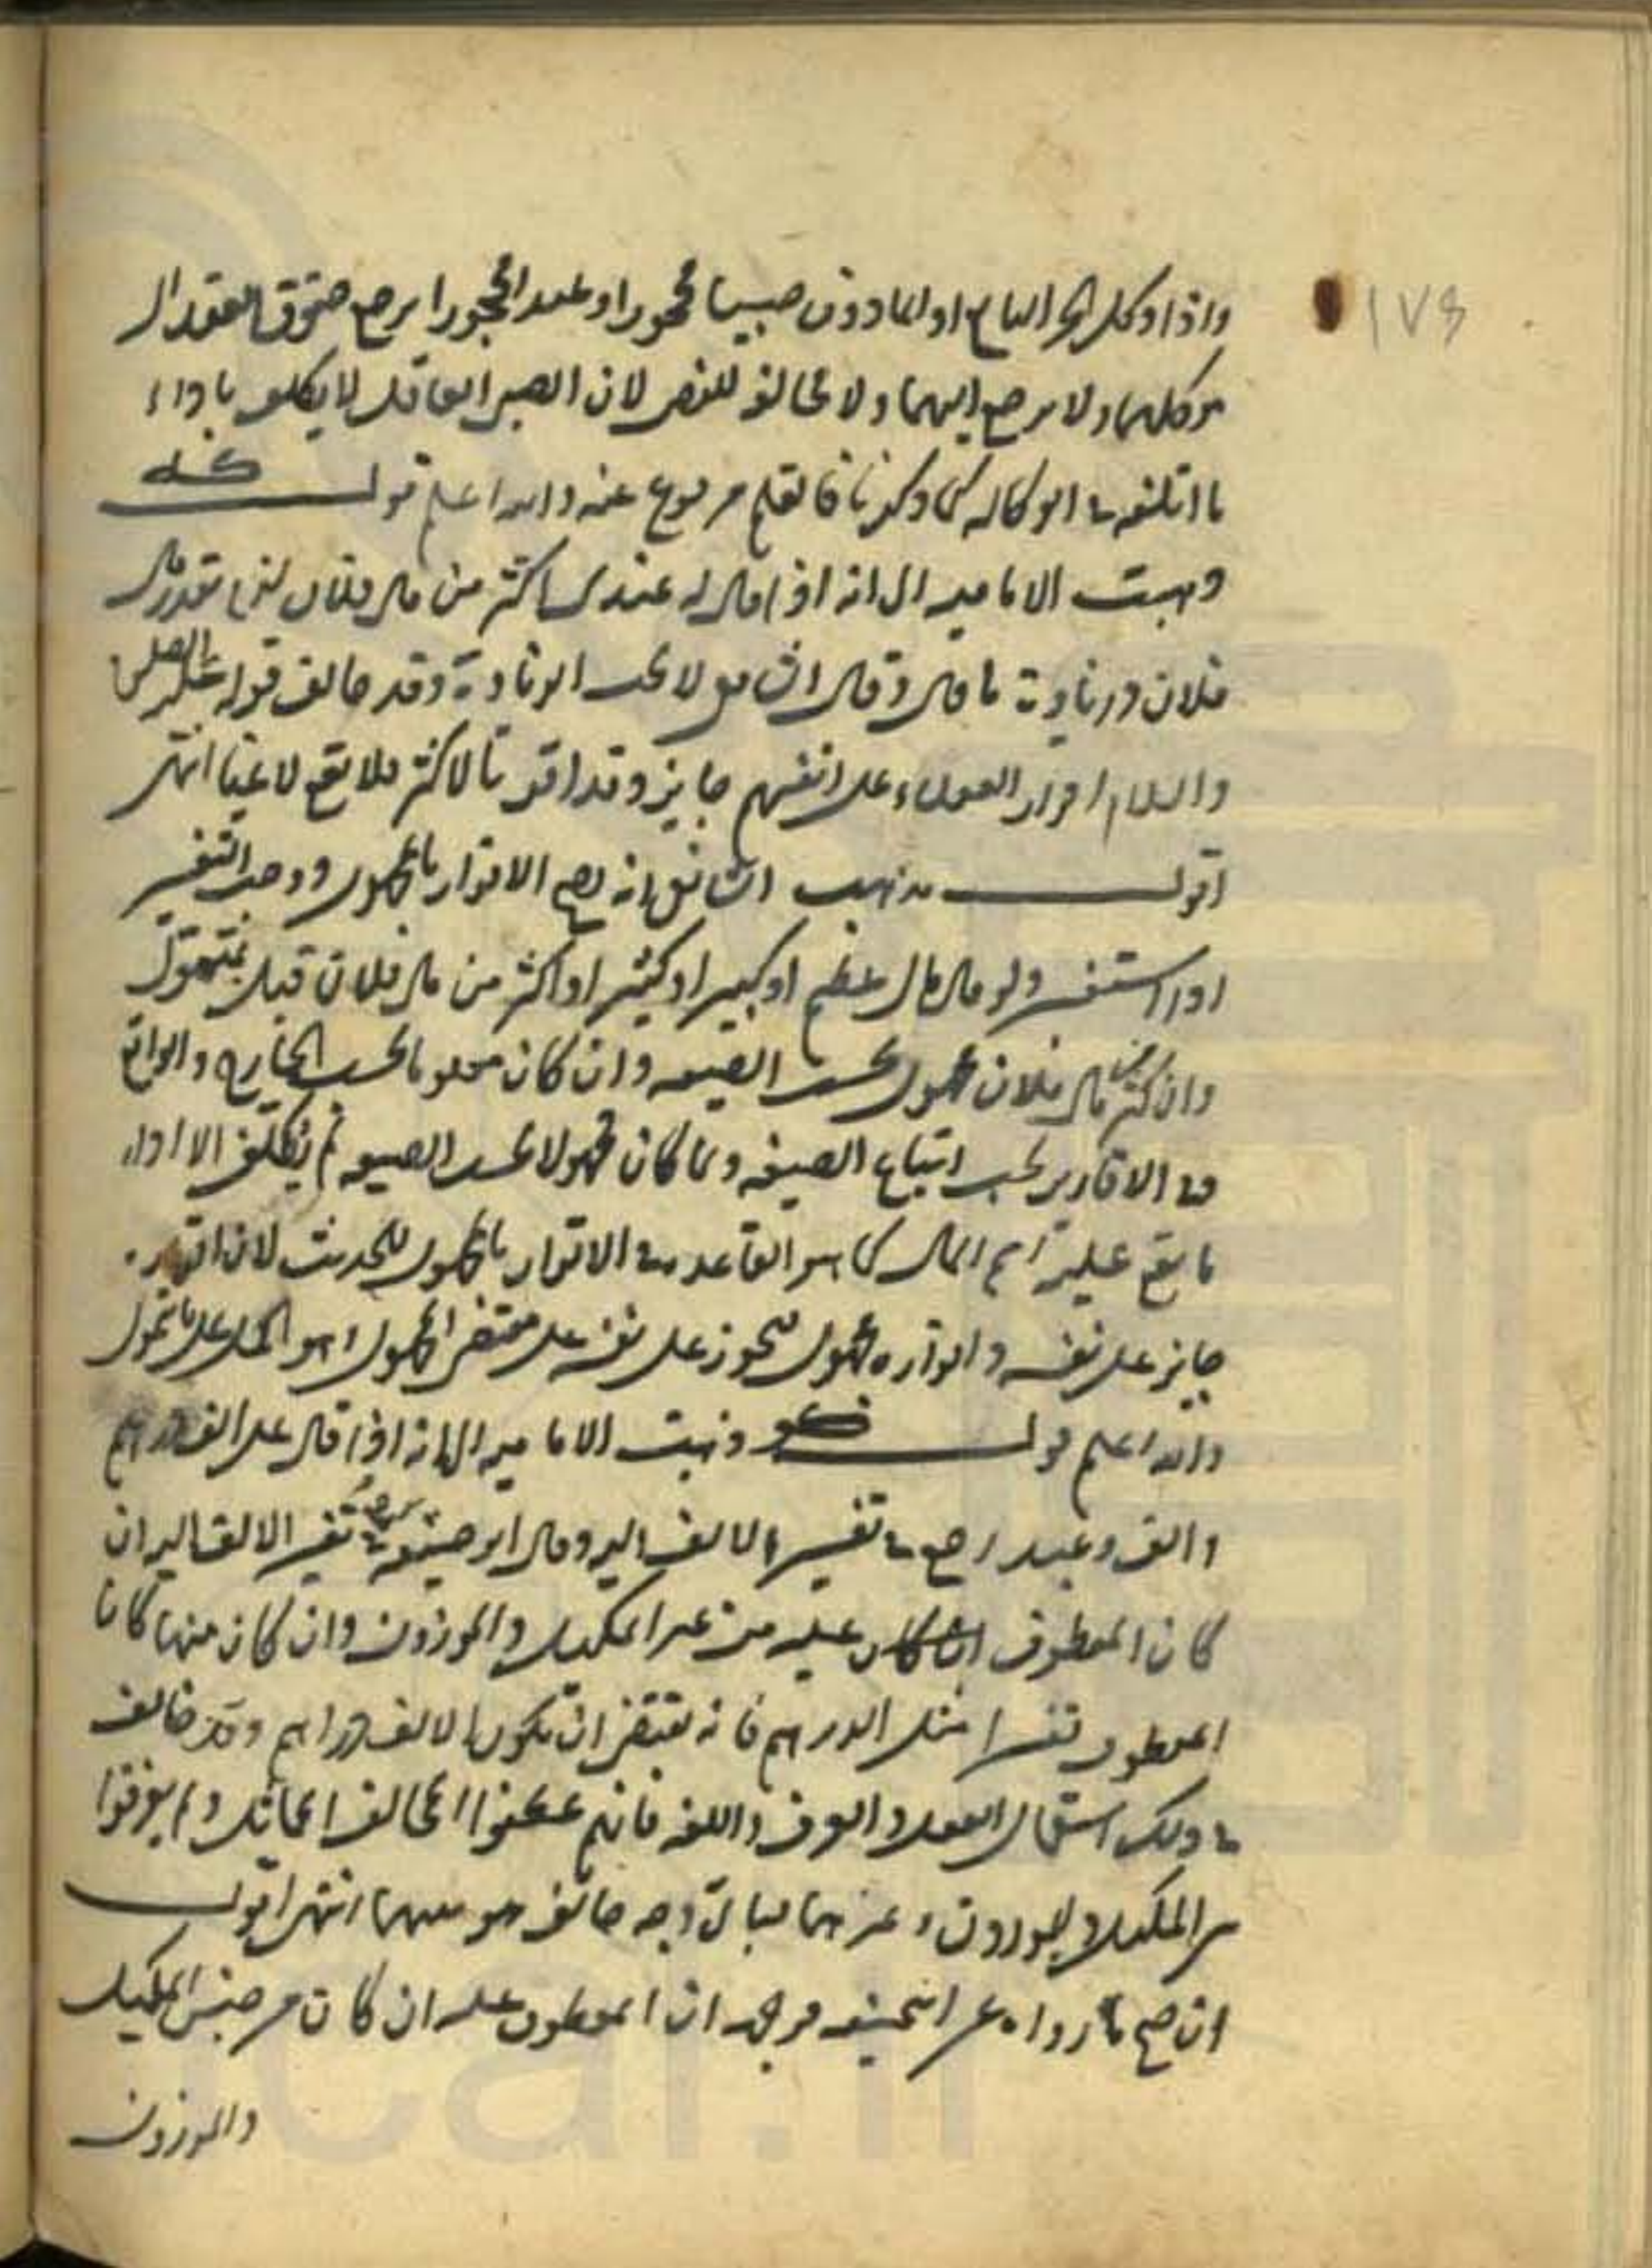 ١٧٤
واذا وكل الحر البالغ او الماذون صبيا محجورا او عبدا محجورا يرجع حقوق العقد الى
موكلهما ولا يرجع اليهما ولا مخالفه للنص لان الصبى العاقل لا يكلف باداء
ما اتلفه فى الوكاله كما ذكرنا فالقلم مرفوع عنه والله اعلم قوله
ذهبت الاماميه الى انه اذا قال له عندى اكثر من مال فلان لزمه بقدر مال
فلان وزيادة ما قال وقال الشافعى لا يجب الزيادة وقد خالف قوله عليه الصلوة
والسلام اقرار العقلاء على انفسهم جايز وقد اقر بالاكثر فلا يقع لاغيا انتهى
اقول مذهب الشافعى انه يصح الاقرار بالمجهول ووجب التفسير
اذا استفسر ولو قال مال عظيم او كبير او كثير او اكثر من مال فلان قبل بمتمول
وان اكثر من مال فلان مجهول بحسب الصيغه وان كان معلوما بحسب الخارج والواقع
وفى الاقارير يجب اتباع الصيغه ولما كان مجهولا بحسب الصيغه لم يكلف الا اداء
ما يقع عليه اسم المال كما هو القاعده فى الاقرار بالمجهول للحديث لان اقراره
جايز على نفسه واقراره مجهول فيجوز على نفسه على مقتضى المجهول وهو الحمل على ما يتمول
والله اعلم قوله ذهبت الاماميه الى انه اذا قال على الف درهم
او الف وعبد رجع فى تفسير الالف اليه وقال ابو حنيفه يرجع فى تفسير الالف اليه ان
كان المعطوف عليه من غير المكيل والموزون وان كان منهما كان
المعطوف تفسيرا مثل الدرهم فانه يقتضى ان يكون الالف دراهم وقد خالف
فى ذلك استعمال العقل والعرف واللغه فانهم عطفوا المخالف المماثل ولم يفرقوا
بين المكيل والموزون وغيرهما فباى وجه خالف هو بينهما انتهى اقول
ان صح ما رواه عن ابى حنيفه فوجهه ان المعطوف عليه ان كان من جنس المكيل
والموزون